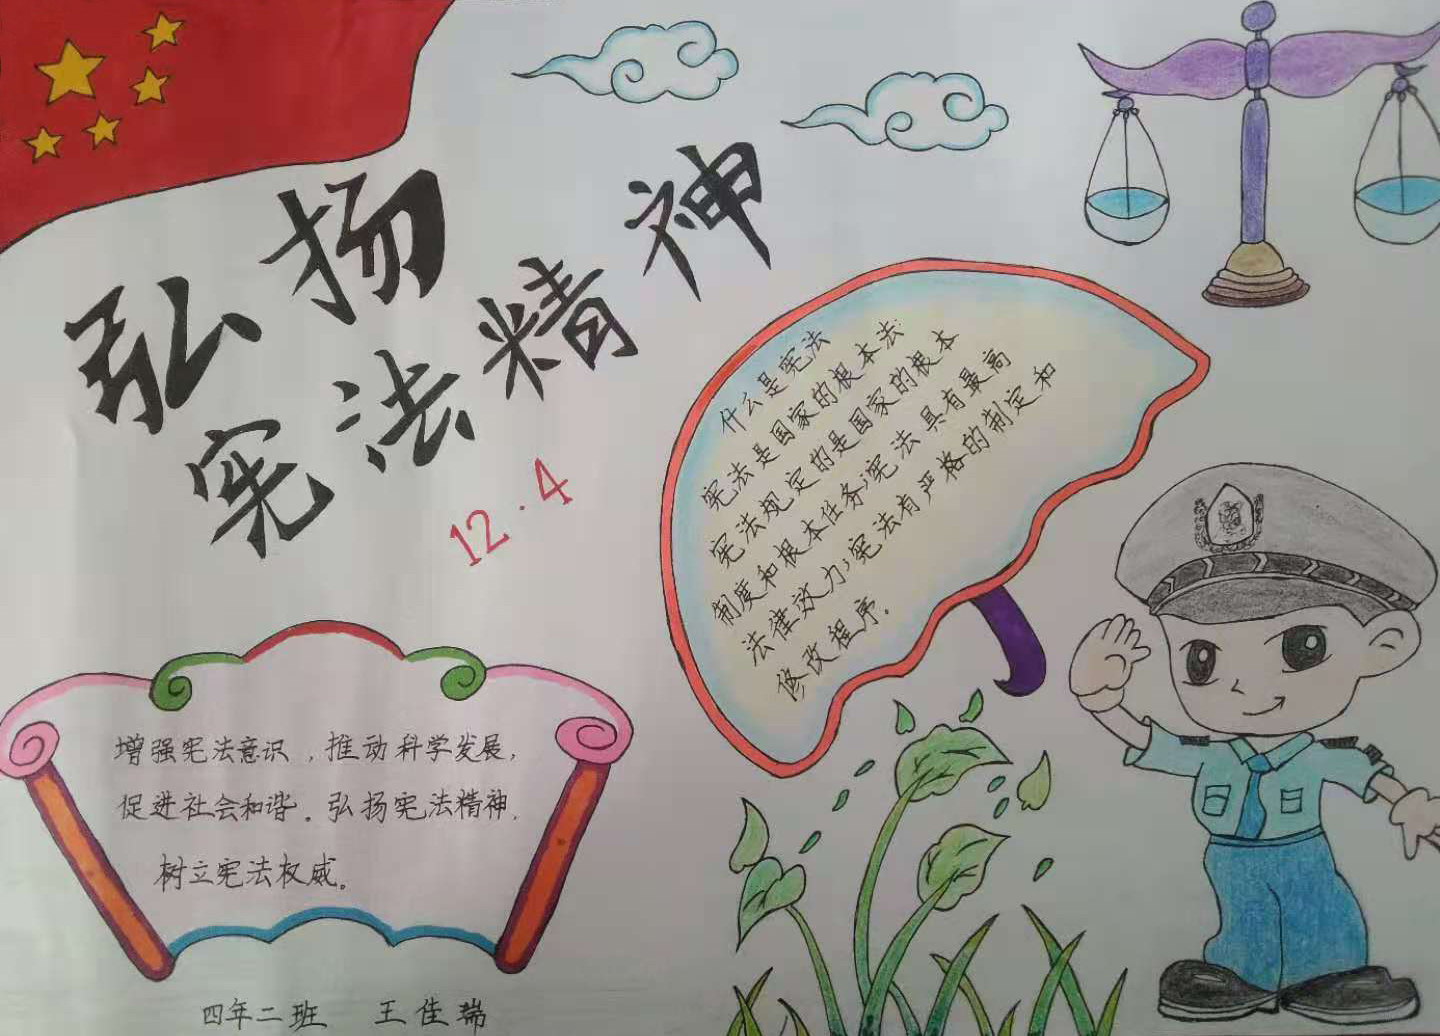 弘扬
宪法精神
12.4
什么是宪法
宪法是国家的根本法:
宪法规定的是国家的根本
制度和根本任务;宪法具有最高
法律效力;宪法有严格的制定和
修改程序。
增强宪法意识,推动科学发展,
促进社会和谐。弘扬宪法精神,
树立宪法权威。
四年二班 王佳瑞